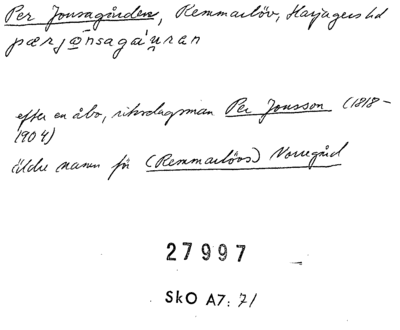 Per Jonsagården, Remmarlöv, Harjagers hd
pærjo̱nsagáu̱ran
efter en åbo, riksdagsman Per Jonsson (1818–
1904)
äldre namn för (Remmarlövs) Norregård
27997
SkO A7: 71